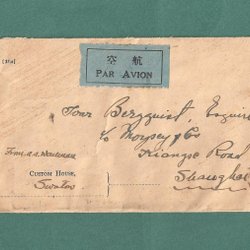 [318]
空 航
PAR AVION
Tour Bergquist, Esquire
c/o Moysey & Co
Kiangse Road
Shanghai
From
CUSTOM HOUSE,
Swatow